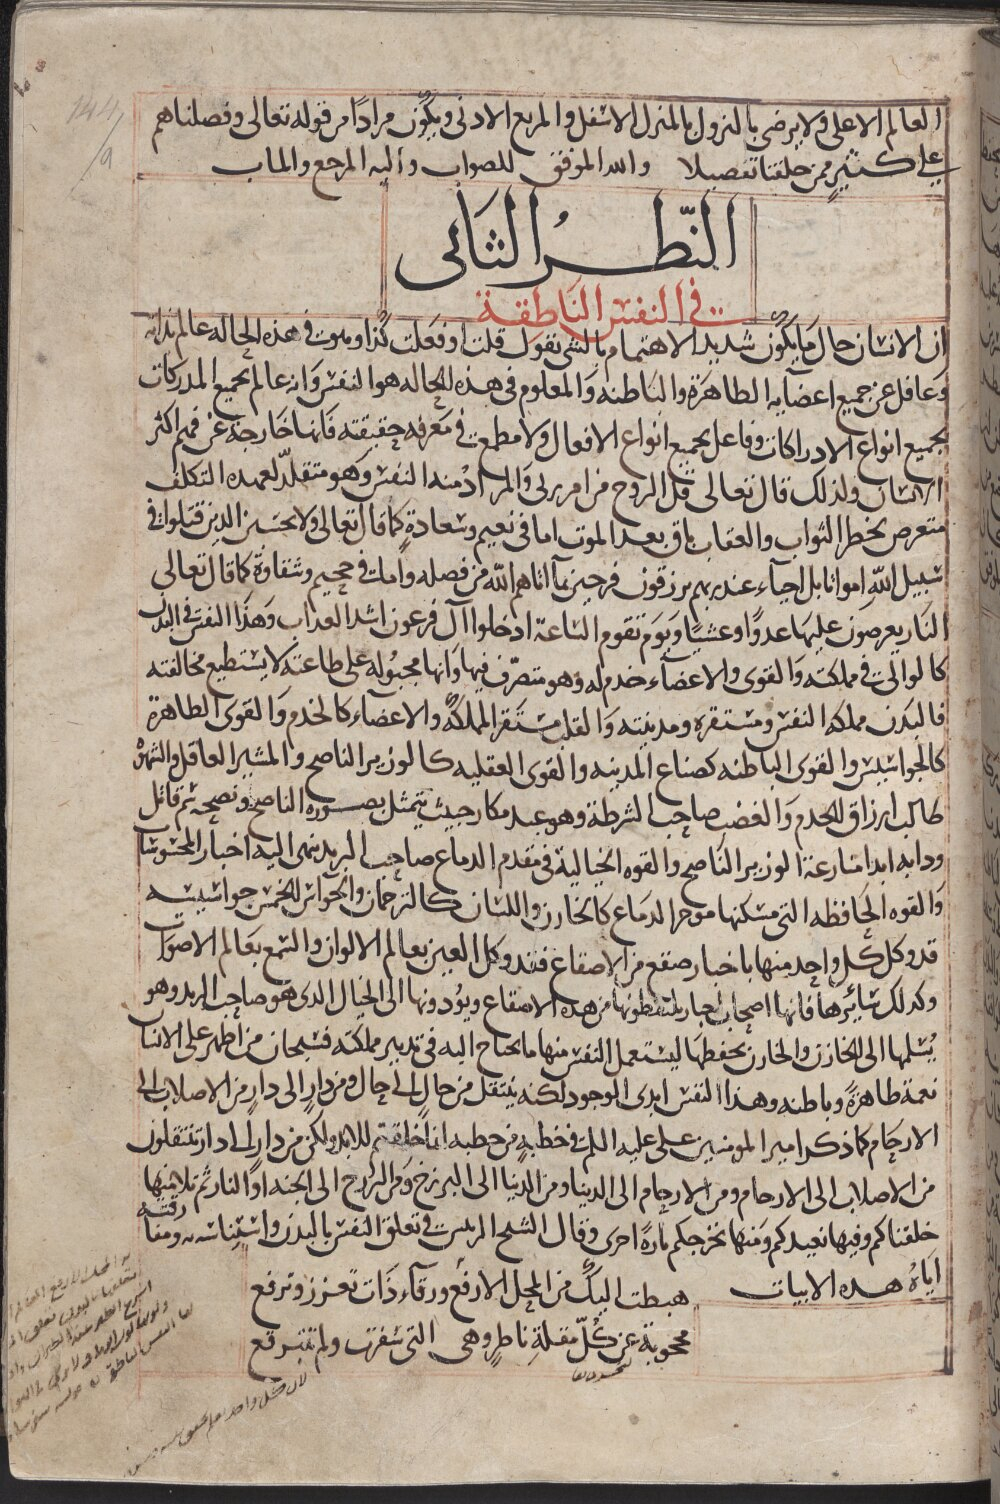 العالم الاعلى ولا يرضى بالنزول بالمنزل الاسفل والمربع الادنى ويكون مرادا من قوله تعالى وفضلناهم
على كثير ممن خلقنا تفصيلا والله الموفق للصواب واليه المرجع والماب
النظر الثانى
فى النفس الناطقة
ان الانسان حال ما يكون شديد الاهتمام بالشى يقول قلت او فعلت كذا وهو فى هذه الحاله عالم بذاته
وغافل عن جميع اعضايه الظاهرة والباطنه والمعلوم فى هذه الحاله هو النفس وانه عالم بجميع المدركات
بجميع انواع الادراكات وفاعل بجميع انواع الافعال ولا مطمع فى معرفه حقيقته فانها خارجة عن فهم اكثر
الانسان ولذلك قال تعالى قل الروح من امر ربى والمراد منه النفس وهو متقلد لعهده التكلف
متعرض بخطر الثواب والعقاب باق بعد الموت اما فى نعيم وسعادة كما قال تعالى ولا تحسبن الذين قتلوا فى
سبيل الله امواتا بل احياء عند ربهم يرزقون فرحين بما اتاهم الله من فضله واما فى جحيم وشقاوة كما قال تعالى
النار يعرضون عليها غدوا وعشيا ويوم تقوم الساعة ادخلوا آل فرعون اشد العذاب وهذا النفس فى البدن
كالوالى فى مملكته والقوى والاعضاء خدم له وهو متصرف فيها وانها مجبوله على طاعته لا يستطيع مخالفته
فالبدن مملكه النفس ومستقره ومدينته والقلب مستقر المملكه والاعضاء كالخدم والقوى الظاهرة
كالجواسيس والقوى الباطنه كصناع المدينه والقوى العقليه كالوزير الناصح والمشير العاقل والشهوة
طالب ارزاق الخدم والغضب صاحب الشرطة وهو عبد مكار خبيث يتمثل بصوره الناصح ونصحه سم قاتل
ودابه ابدا منازعة الوزير الناصح والقوه الخيالية فى مقدم الدماغ صاحب البريد ينهى اليه اخبار المحسوسات
والقوه الحافظه التى مسكنها موخر الدماغ كالخازن واللسان كالترجمان والحواس الخمس جواسيسه
قد وكل كل واحد منها باخبار صقع من الاصقاع فقد وكل العين بعالم الالوان والسمع بعالم الاصوات
وكذلك سائرها فانها اصحاب اخبار يلتقطونها من هذه الاصقاع ويؤدونها الى الخيال الذى هو صاحب البريد وهو
يسلمها الى الخازن والخازن يحفظها ليستعمل النفس منها ما يحتاج اليه فى تدبير مملكته فسبحان من اظهر على الانسا
نعمة ظاهرة وباطنه وهذا النفس ابدى الوجود لكنه ينتقل من حال الى حال ومن دار الى دار من الاصلاب الى
الارحام كما ذكر امير المومنين على عليه السلم فى خطبة من خطبه انما خلقتم للابد ولكن من دار الى دار تنتقلون
من الاصلاب الى الارحام ومن الارحام الى الدنيا ومن الدنيا الى البرزخ ومن البرزخ الى الجنه او النار ثم تلا منها
خلقناكم وفيها نعيدكم ومنها نخرجكم تارة اخرى وقال الشيخ الرييس فى تعلق النفس بالبدن واستيناسه به ومفارقته
اياه هذه الابيات
هبطت اليك من المحل الارفع ورقاء ذات تعزز وترفع
محجوبة عن كل مقلة ناظر وهى التى سفرت ولم تتبرقع